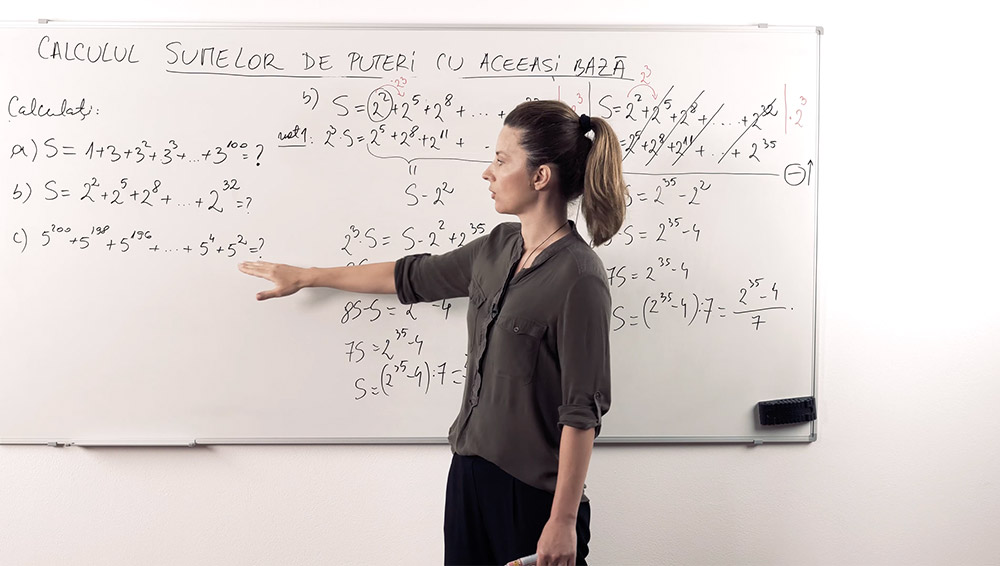 CALCULUL SUMELOR DE PUTERI CU ACEEASI BAZĂ
Calculați:
a) S = 1+3+3²+3³+...+3¹⁰⁰=?
b) S = 2²+2⁵+2⁸+...+2³²=?
c) 5²⁰⁰+5¹⁹⁸+5¹⁹⁶+...+5⁴+5²=?
·2³
b) S=2²+2⁵+2⁸+...+
2³·S=2⁵+2⁸+2¹¹+
S-2²
2³·S=S-2²+2³⁵
8S-S=2 -4
7S=2³⁵-4
S=(2³⁵-4):7=
2³
S=2²+2⁵+2⁸+...+2³² |·2³
2⁵+2⁸+2¹¹+...+2³⁵
(−)↑
S=2³⁵-2²
·S=2³⁵-4
7S=2³⁵-4
S=(2³⁵-4):7=(2³⁵-4)/7.